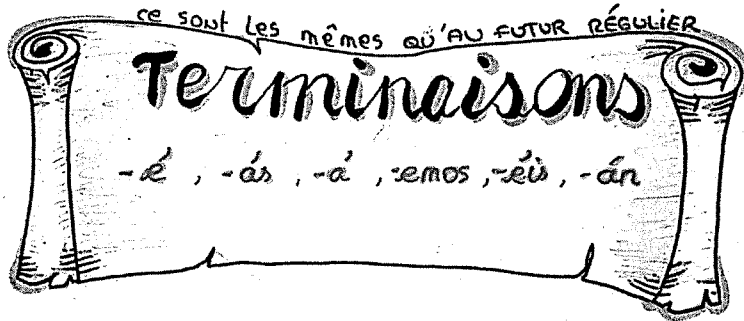 ce sont les mêmes qu'au futur régulier
Terminaisons
-é, -ás, -á, -emos, -éis, -án